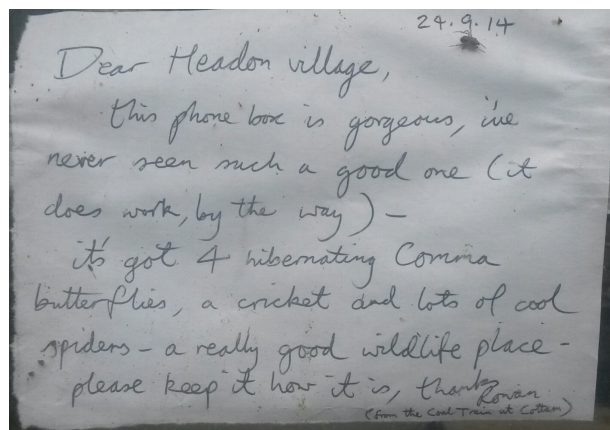 24.9.14
Dear Headon village,
this phone box is gorgeous, i've
never seen such a good one (it
does work, by the way) –
it's got 4 hibernating Comma
butterflies, a cricket and lots of cool
spiders – a really good wildlife place –
please keep it how it is, thanks
Rowan
(from the Coal Train at Cottam)